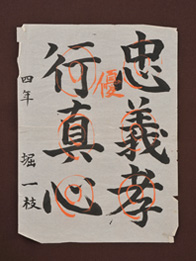 忠義孝
行真心
四年 堀一枝
優